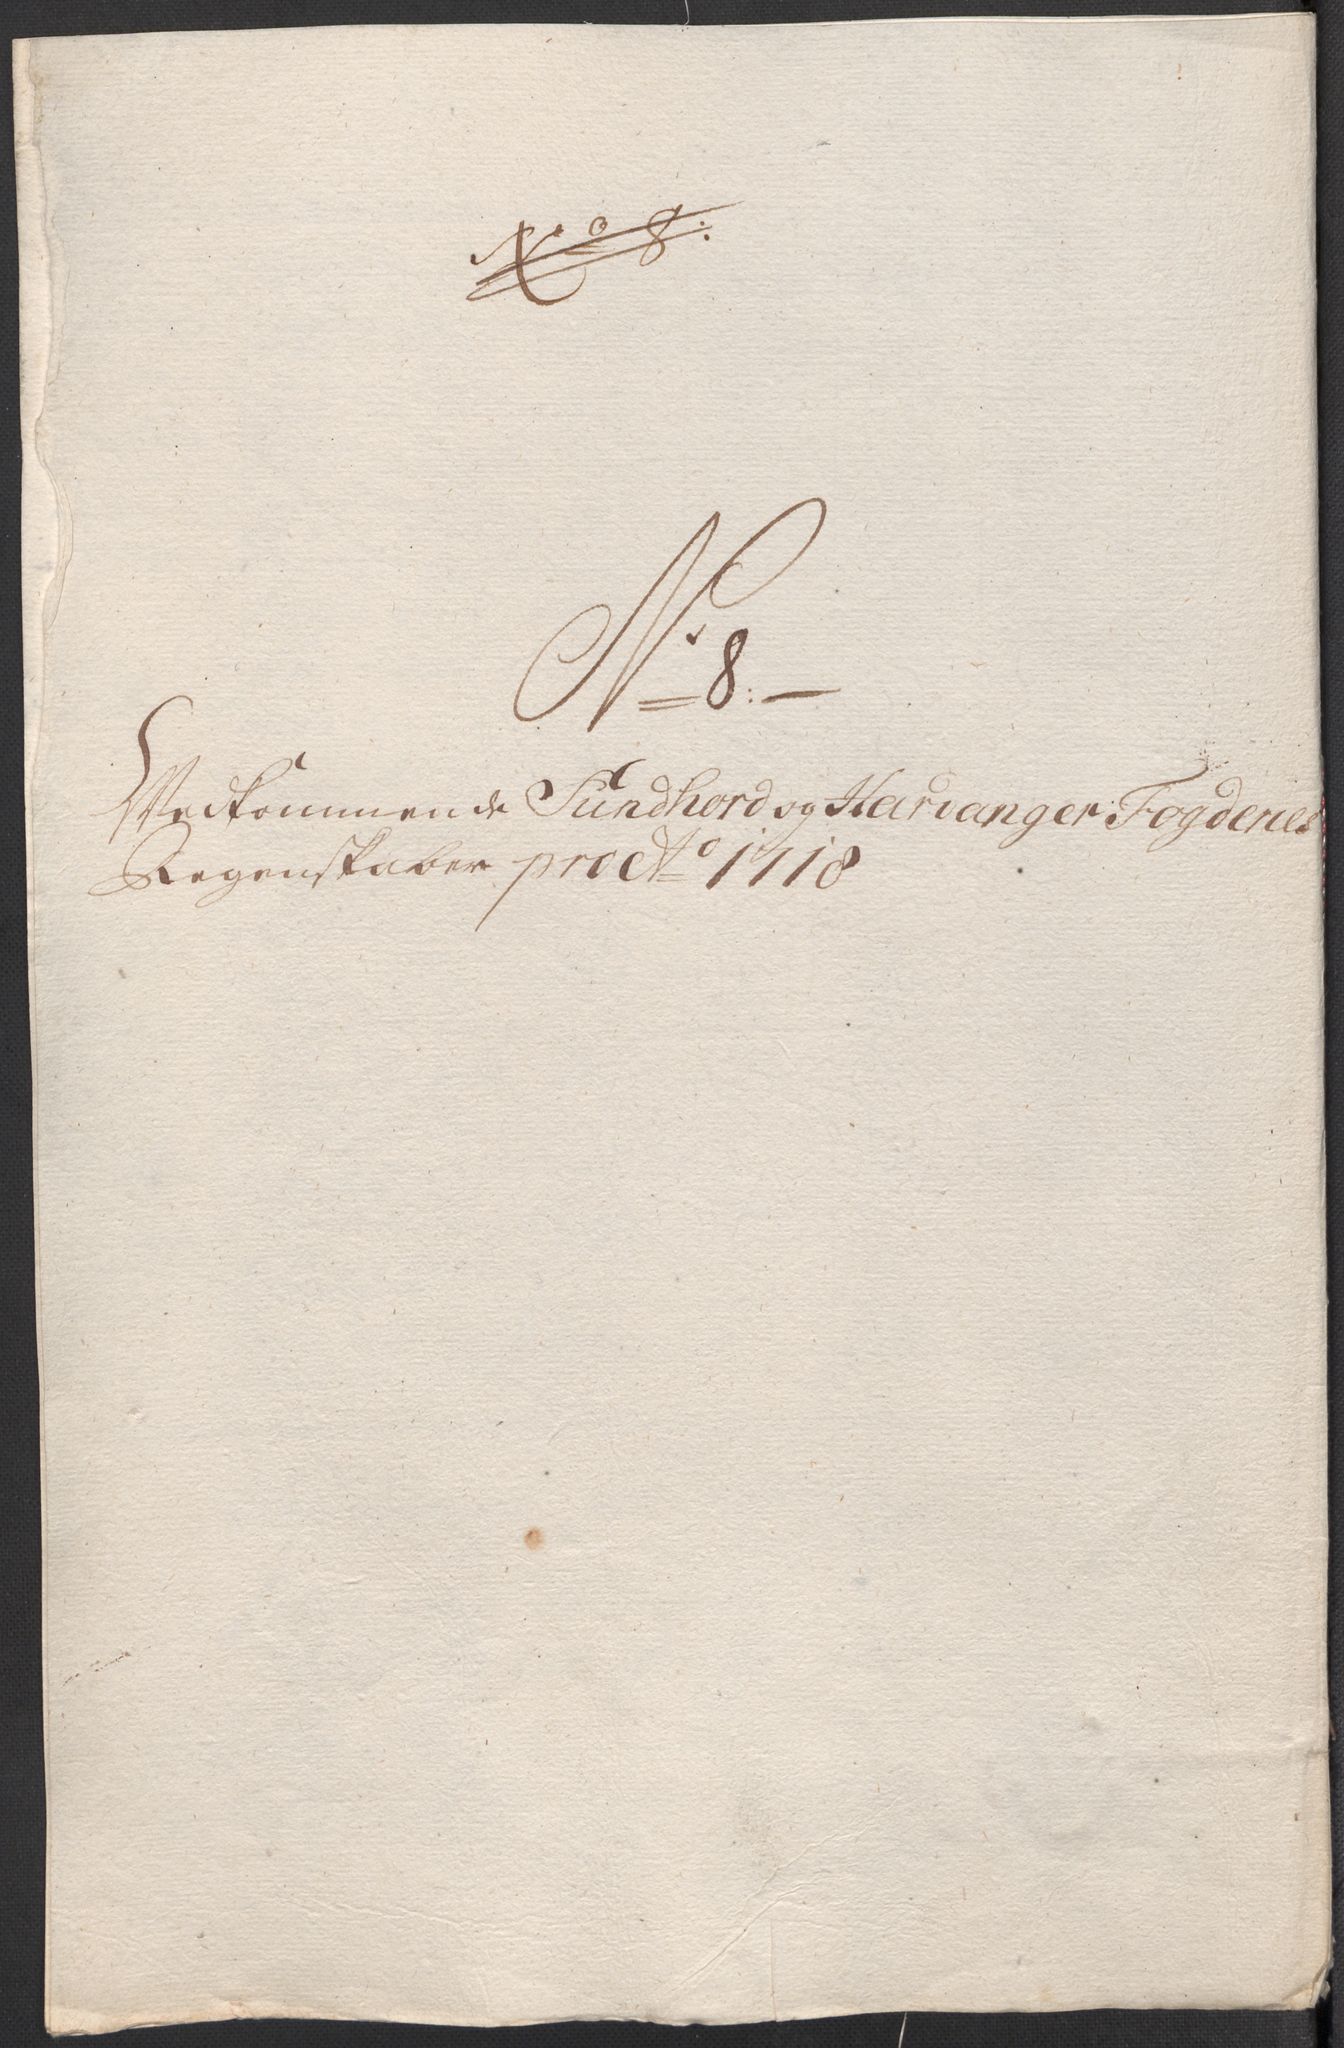 No 8:
No 8:
Vedkommende Sundhord og Harvanger Fogderies
Regenskaber pro Ao 1718